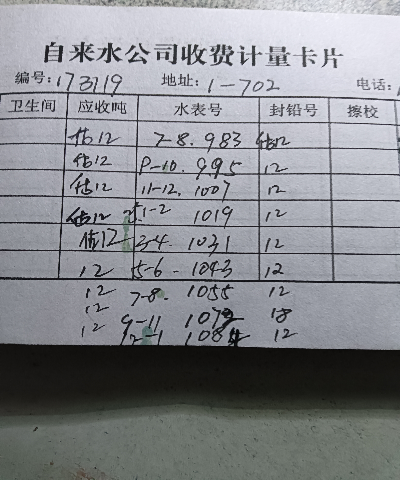 自来水公司收费计量卡片
编号:173119 地址:1-702 电话:
卫生间 应收吨 水表号 封铅号 擦校
估12 7-8. 983 估12
估12 9-10. 995 12
估12 11-12. 1007 12
估12 1-2 1019 12
估12 3-4. 1031 12
12 5-6- 1043 12
12 7-8. 1055 12
12 9-11 1072 18
12 12-1 1084 12